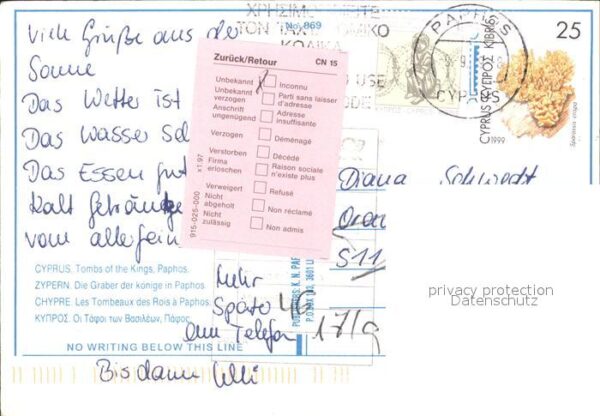 Viele Grüße aus der
Sonne
Das Wetter ist
Das Wasser
Das Essen gut
kalt Getränke
vom allerfein
Mehr
Später
am Telefon
Bis dann Uli
No. 869
ΧΡΗΣΙΜΟΠΟΙΕΙΤΕ
ΤΟΝ ΤΑΧ ΟΜΙΚΟ
ΚΩΔΙΚΑ
USE
ODE
PAPHOS
CYPRUS
25
CYPRUS ΚΥΠΡΟΣ KIBRIS
1999
Zurück/Retour CN 15
Unbekannt Inconnu
Unbekannt verzogen Parti sans laisser d'adresse
Anschrift ungenügend Adresse insuffisante
Verzogen Déménagé
Verstorben Décédé
Firma erloschen Raison sociale n'existe plus
Verweigert Refusé
Nicht abgeholt Non réclamé
Nicht zulässig Non admis
915-025-000 x1 97
Diana
S11
46
17/9
privacy protection
Datenschutz
CYPRUS. Tombs of the Kings, Paphos.
ZYPERN. Die Graber der könige in Paphos.
CHYPRE. Les Tombeaux des Rois à Paphos.
ΚΥΠΡΟΣ. Οι Τάφοι των Βασιλέων, Πάφος.
NO WRITING BELOW THIS LINE